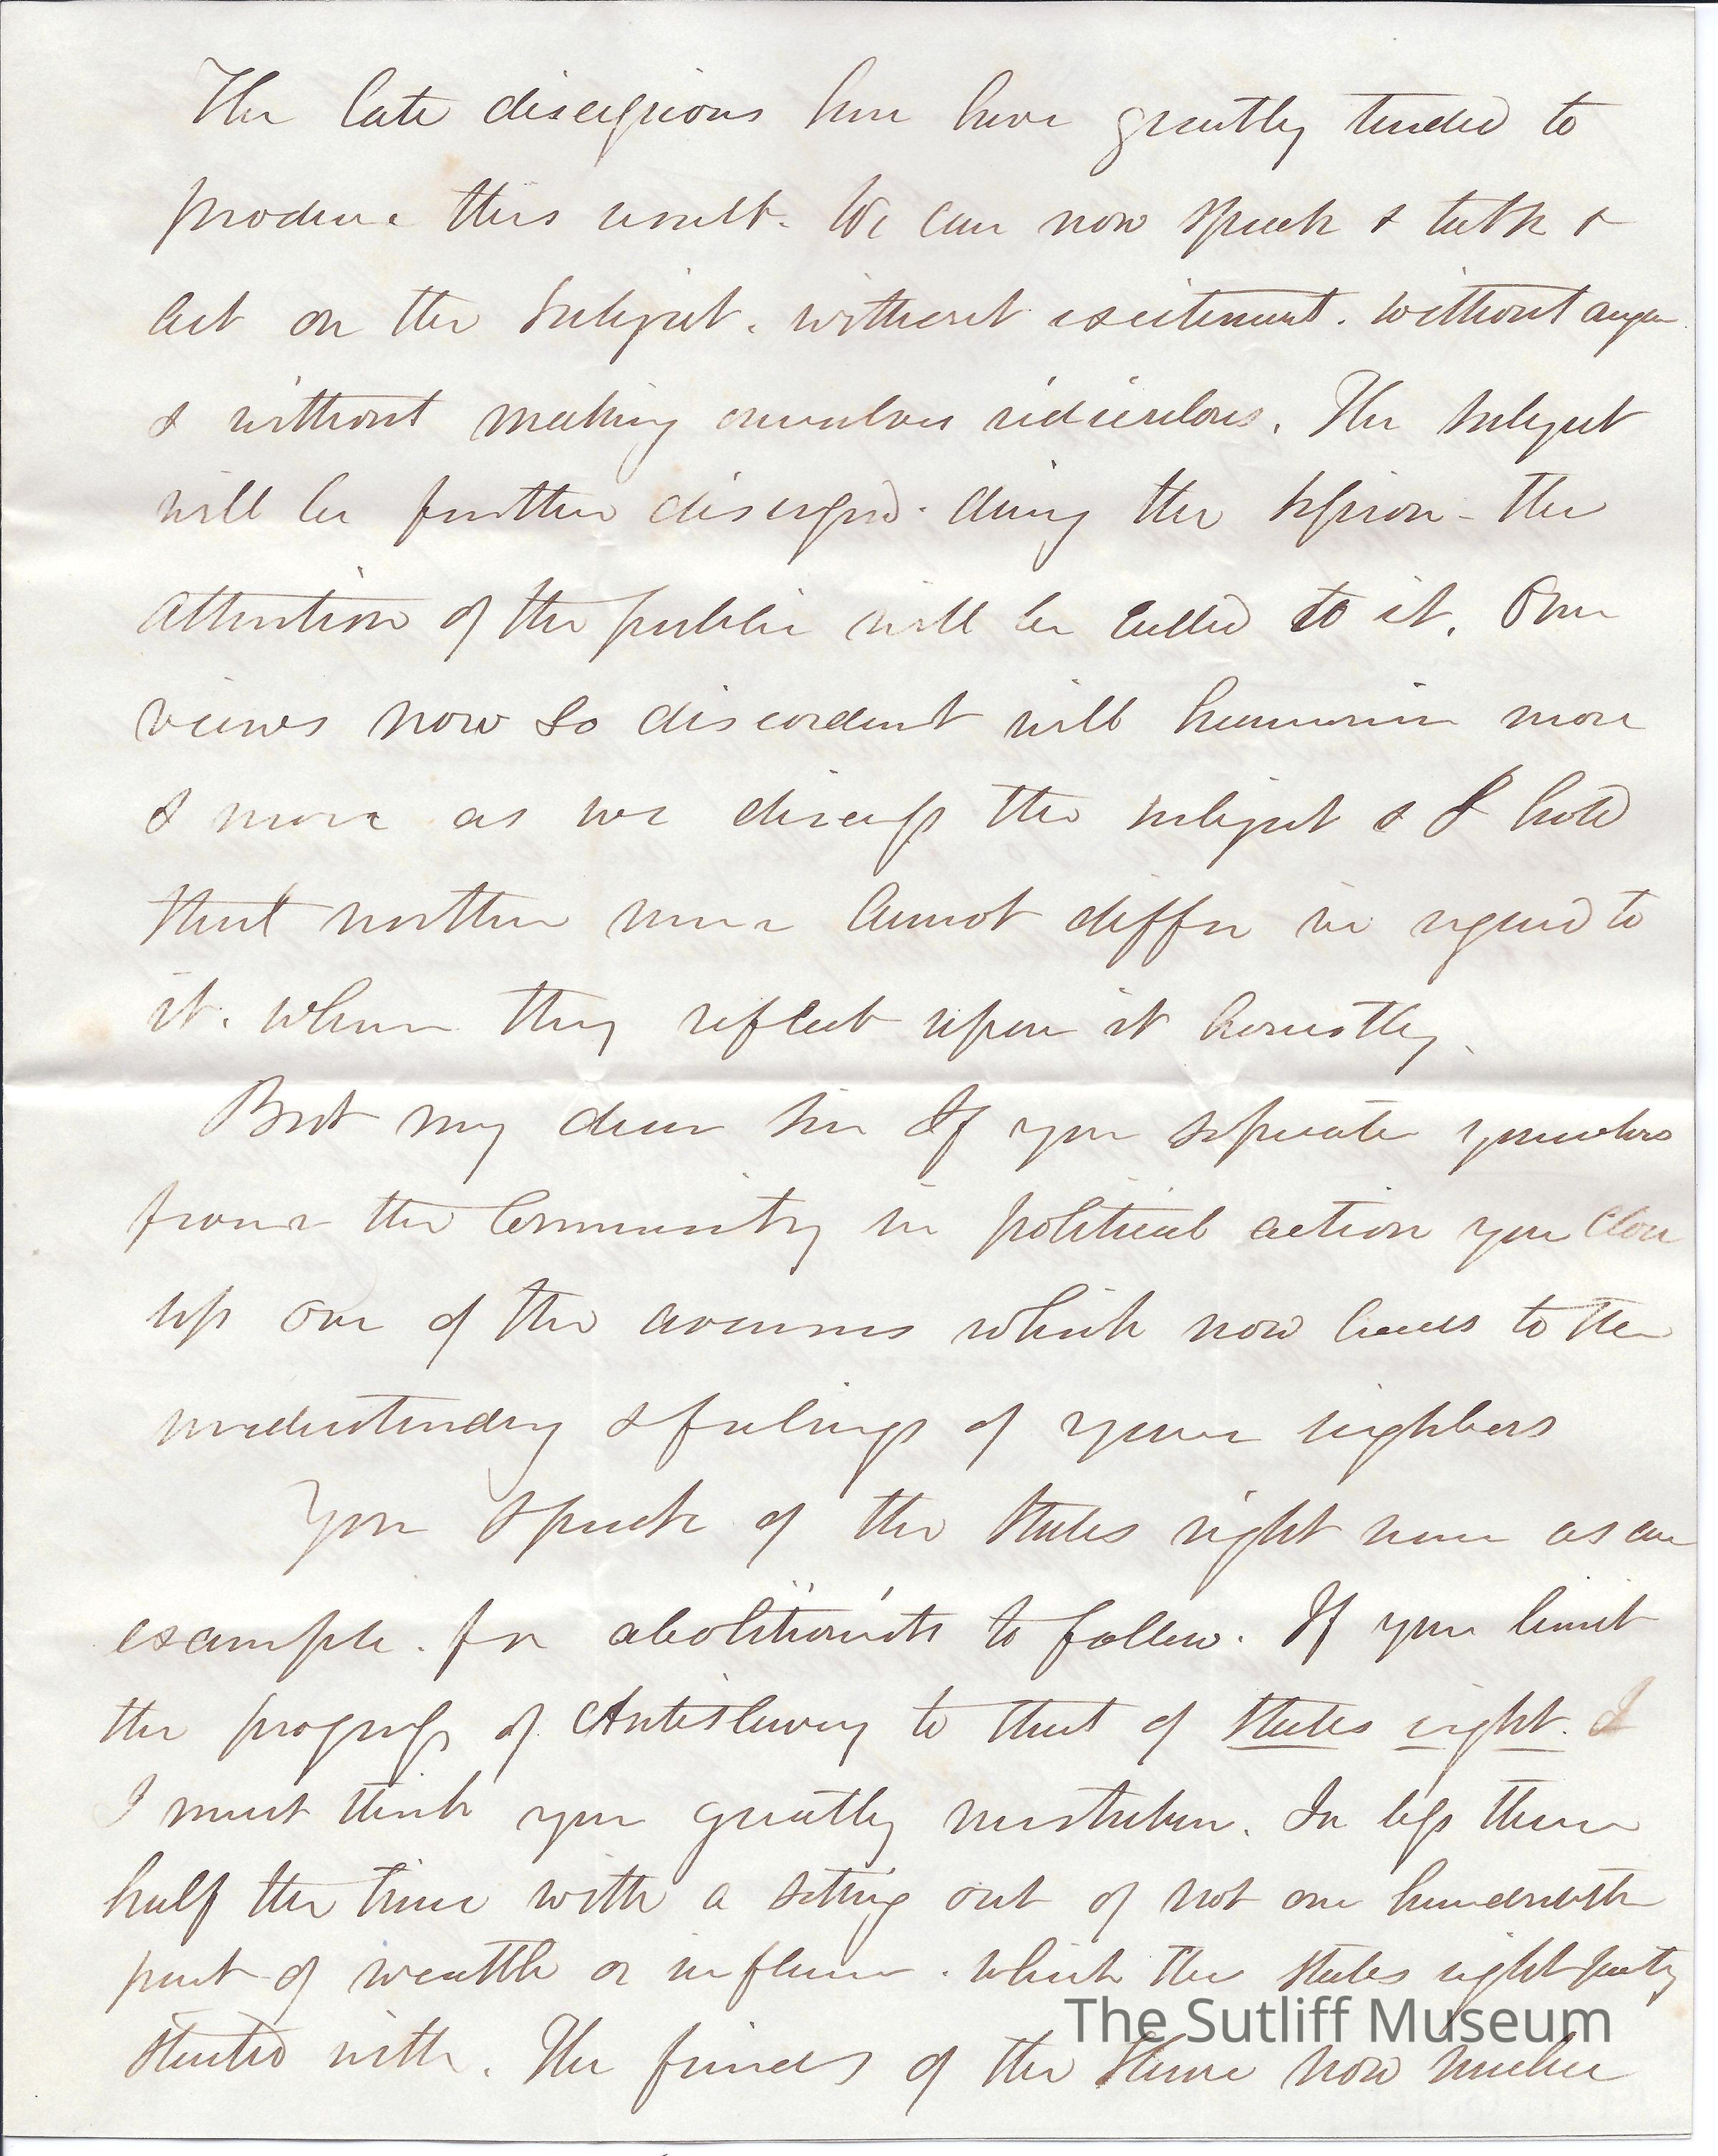 The late discussions here have greatly tended to
produce this result. We can now speak & talk &
act on the subject. without excitement. without anger
& without making ourselves ridiculous. The subject
will be further discussed. during the session - the
attention of the public will be called to it. Our
views now so discordant will harmonise more
& more as we discuss the subject & I hold
that northern men cannot differ in regard to
it. when they reflect upon it honestly.
But my dear sir If you seperate yourselves
from the Community in political action you close
up one of the avenues which now leads to the
understanding & feelings of your neighbors
You speak of the States right men as an
example. for abolitionists to follow. If you limit
the progress of Antislavery to that of States right. I
I must think you greatly mistaken. In less than
half the time with a setting out of not one hundredth
part of wealth or influence. which the states right party
started with. The friends of the slave now number
The Sutliff Museum